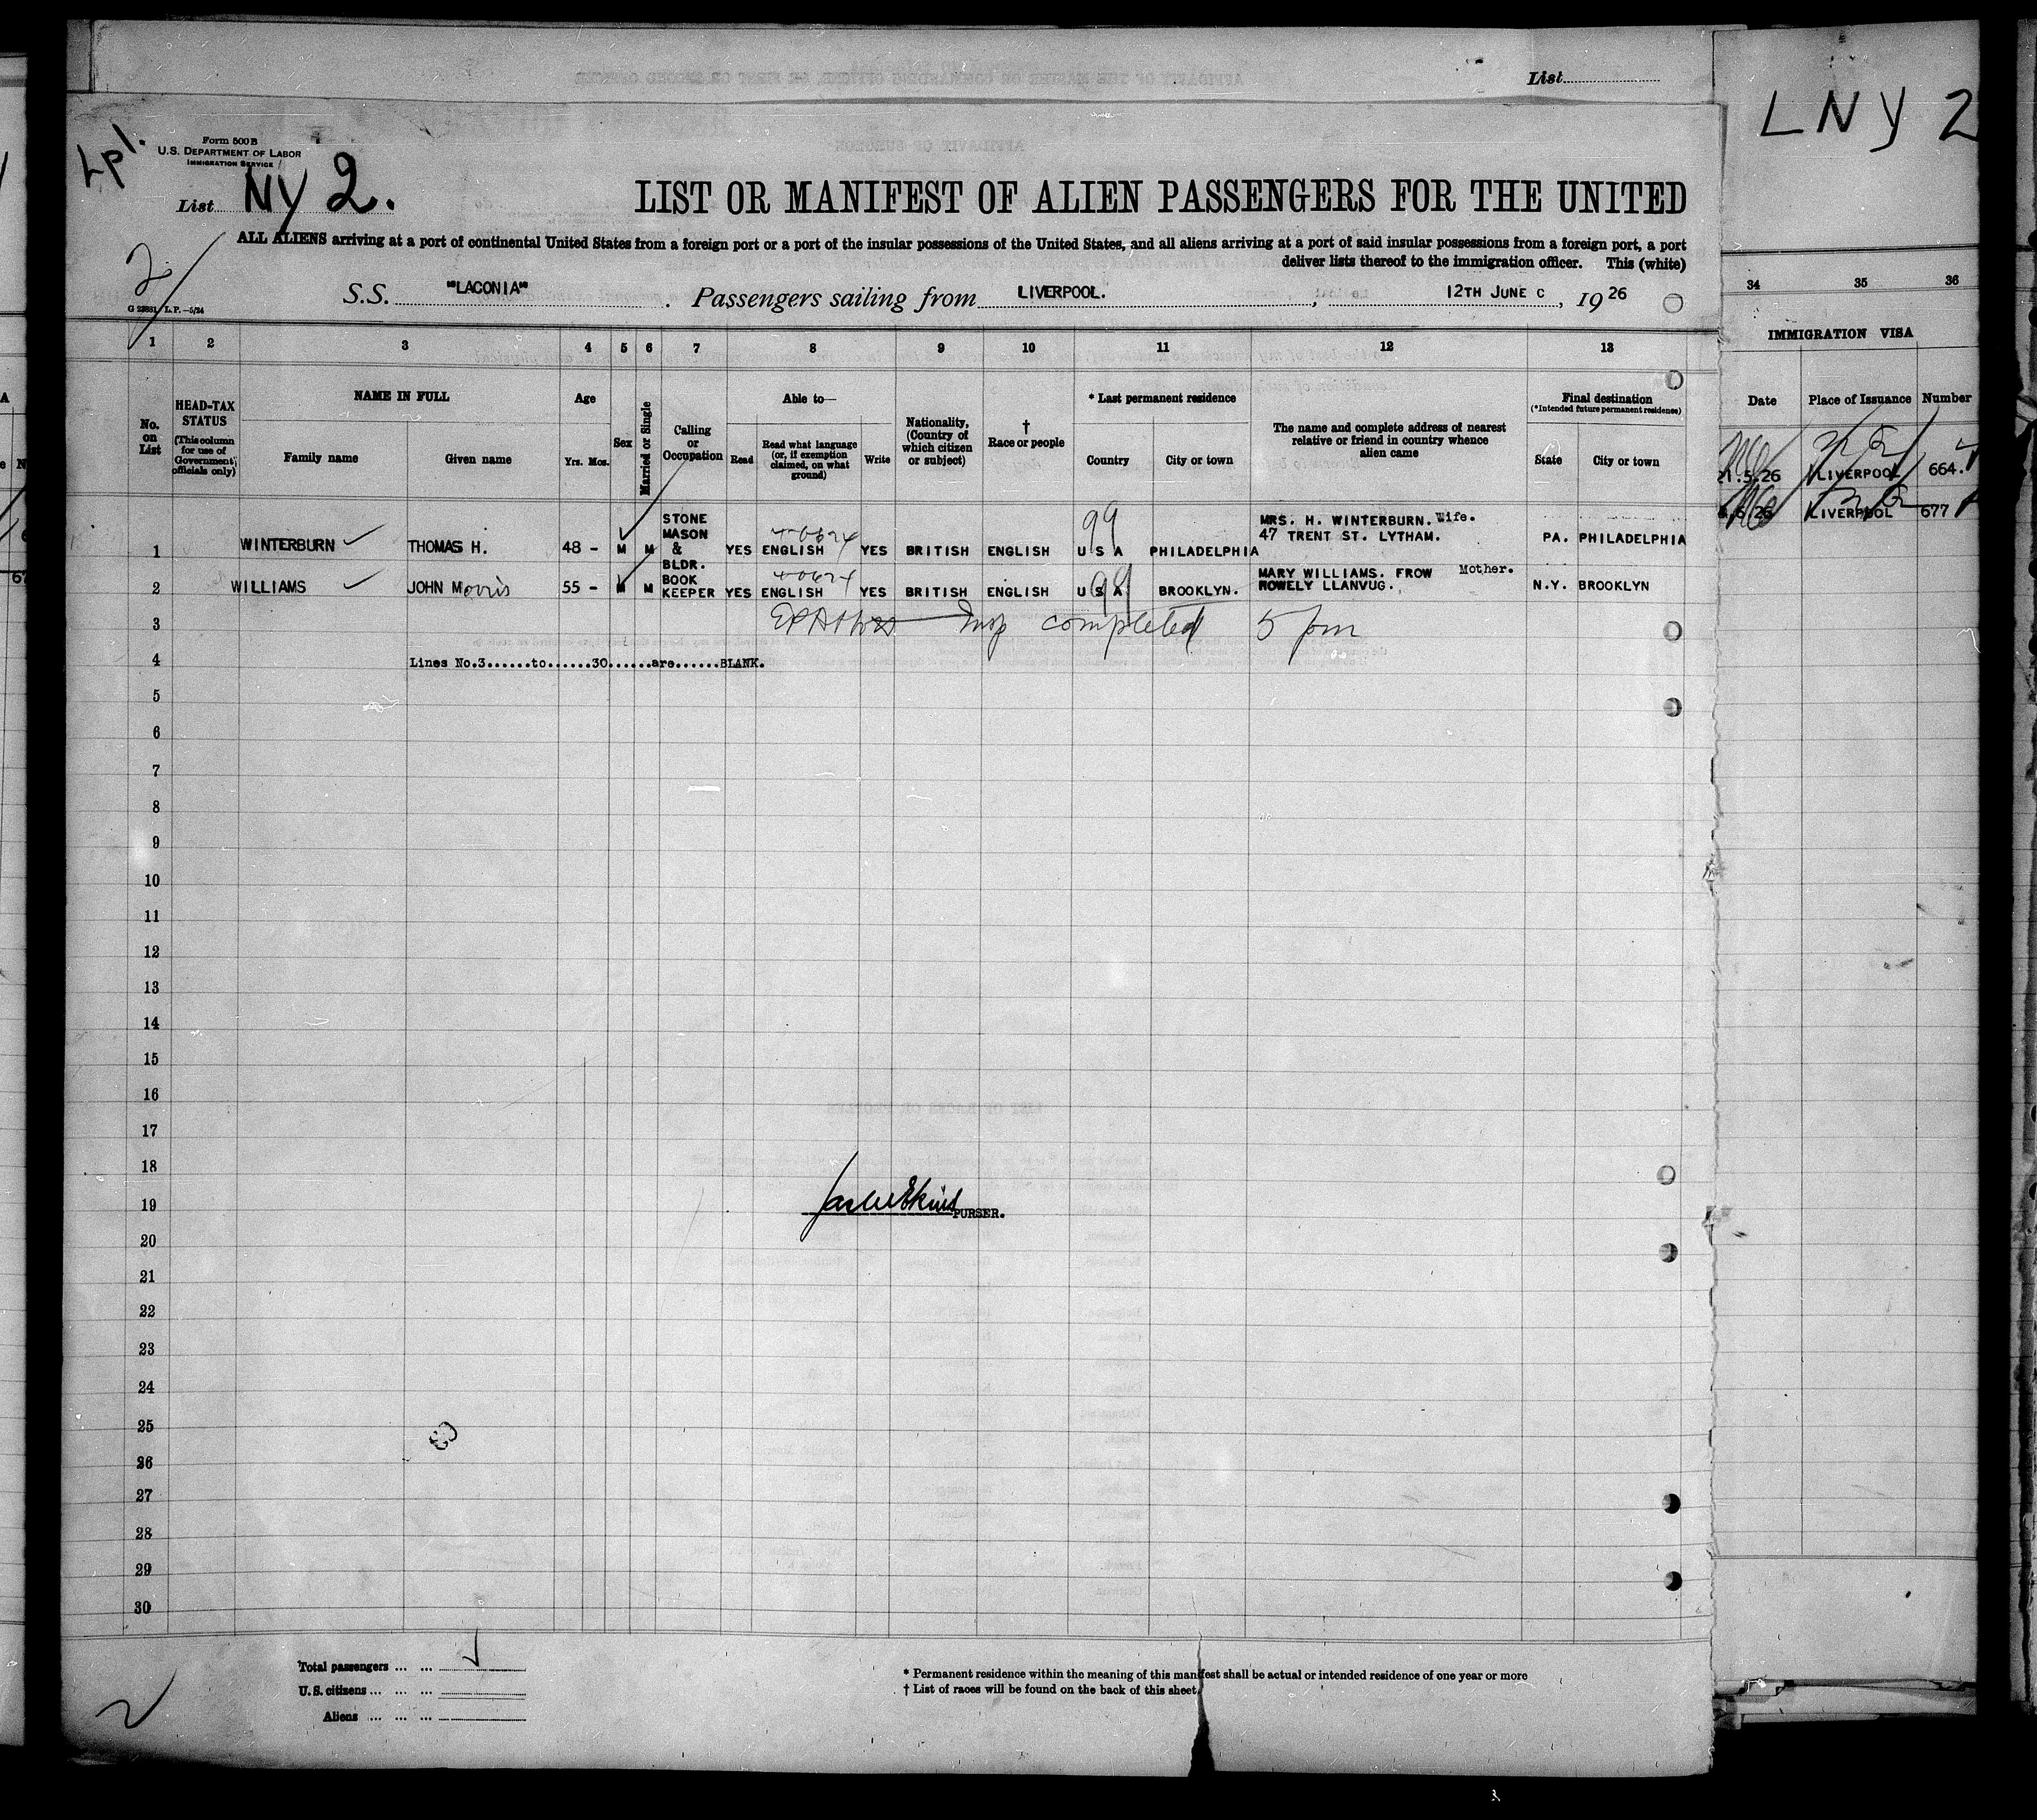 List
LNY 2
Lpl.
Form 500 B
U.S. DEPARTMENT OF LABOR
IMMIGRATION SERVICE
List NY 2.
LIST OR MANIFEST OF ALIEN PASSENGERS FOR THE UNITED
ALL ALIENS arriving at a port of continental United States from a foreign port or a port of the insular possessions of the United States, and all aliens arriving at a port of said insular possessions from a foreign port, a port
deliver lists thereof to the immigration officer. This (white)
2
S.S. "LACONIA". Passengers sailing from LIVERPOOL., 12TH JUNE C, 1926
L. P.—5/24
1 2 3 4 5 6 7 8 9 10 11 12 13
34 35 36
IMMIGRATION VISA
No. on List
HEAD-TAX STATUS
(This column for use of Government officials only)
NAME IN FULL
Family name
Given name
Age
Yrs. Mos.
Sex
Married or Single
Calling or Occupation
Able to—
Read
Read what language (or, if exemption claimed, on what ground)
Write
Nationality, (Country of which citizen or subject)
† Race or people
* Last permanent residence
Country
City or town
The name and complete address of nearest relative or friend in country whence alien came
Final destination
(*Intended future permanent residence)
State
City or town
Date
Place of Issuance
Number
1 WINTERBURN THOMAS H. 48 - M M STONE MASON & BLDR. YES ENGLISH YES BRITISH ENGLISH U S A PHILADELPHIA MRS. H. WINTERBURN. Wife. 47 TRENT ST. LYTHAM. PA. PHILADELPHIA
99
21.5.26 LIVERPOOL 664.
2 WILLIAMS JOHN Morris 55 - M M BOOK KEEPER YES ENGLISH YES BRITISH ENGLISH U S A BROOKLYN. MARY WILLIAMS. FROW Mother. ROWELY LLANVUG. N.Y. BROOKLYN
99
LIVERPOOL 677
3 Insp completed 5 pm
4 Lines No.3......to......30......are......BLANK.
5
6
7
8
9
10
11
12
13
14
15
16
17
18
19 PURSER.
20
21
22
23
24
25
26
27
28
29
30
Total passengers ... ...
U.S. citizens ... ... ...
Aliens ... ... ...
* Permanent residence within the meaning of this manifest shall be actual or intended residence of one year or more
† List of races will be found on the back of this sheet